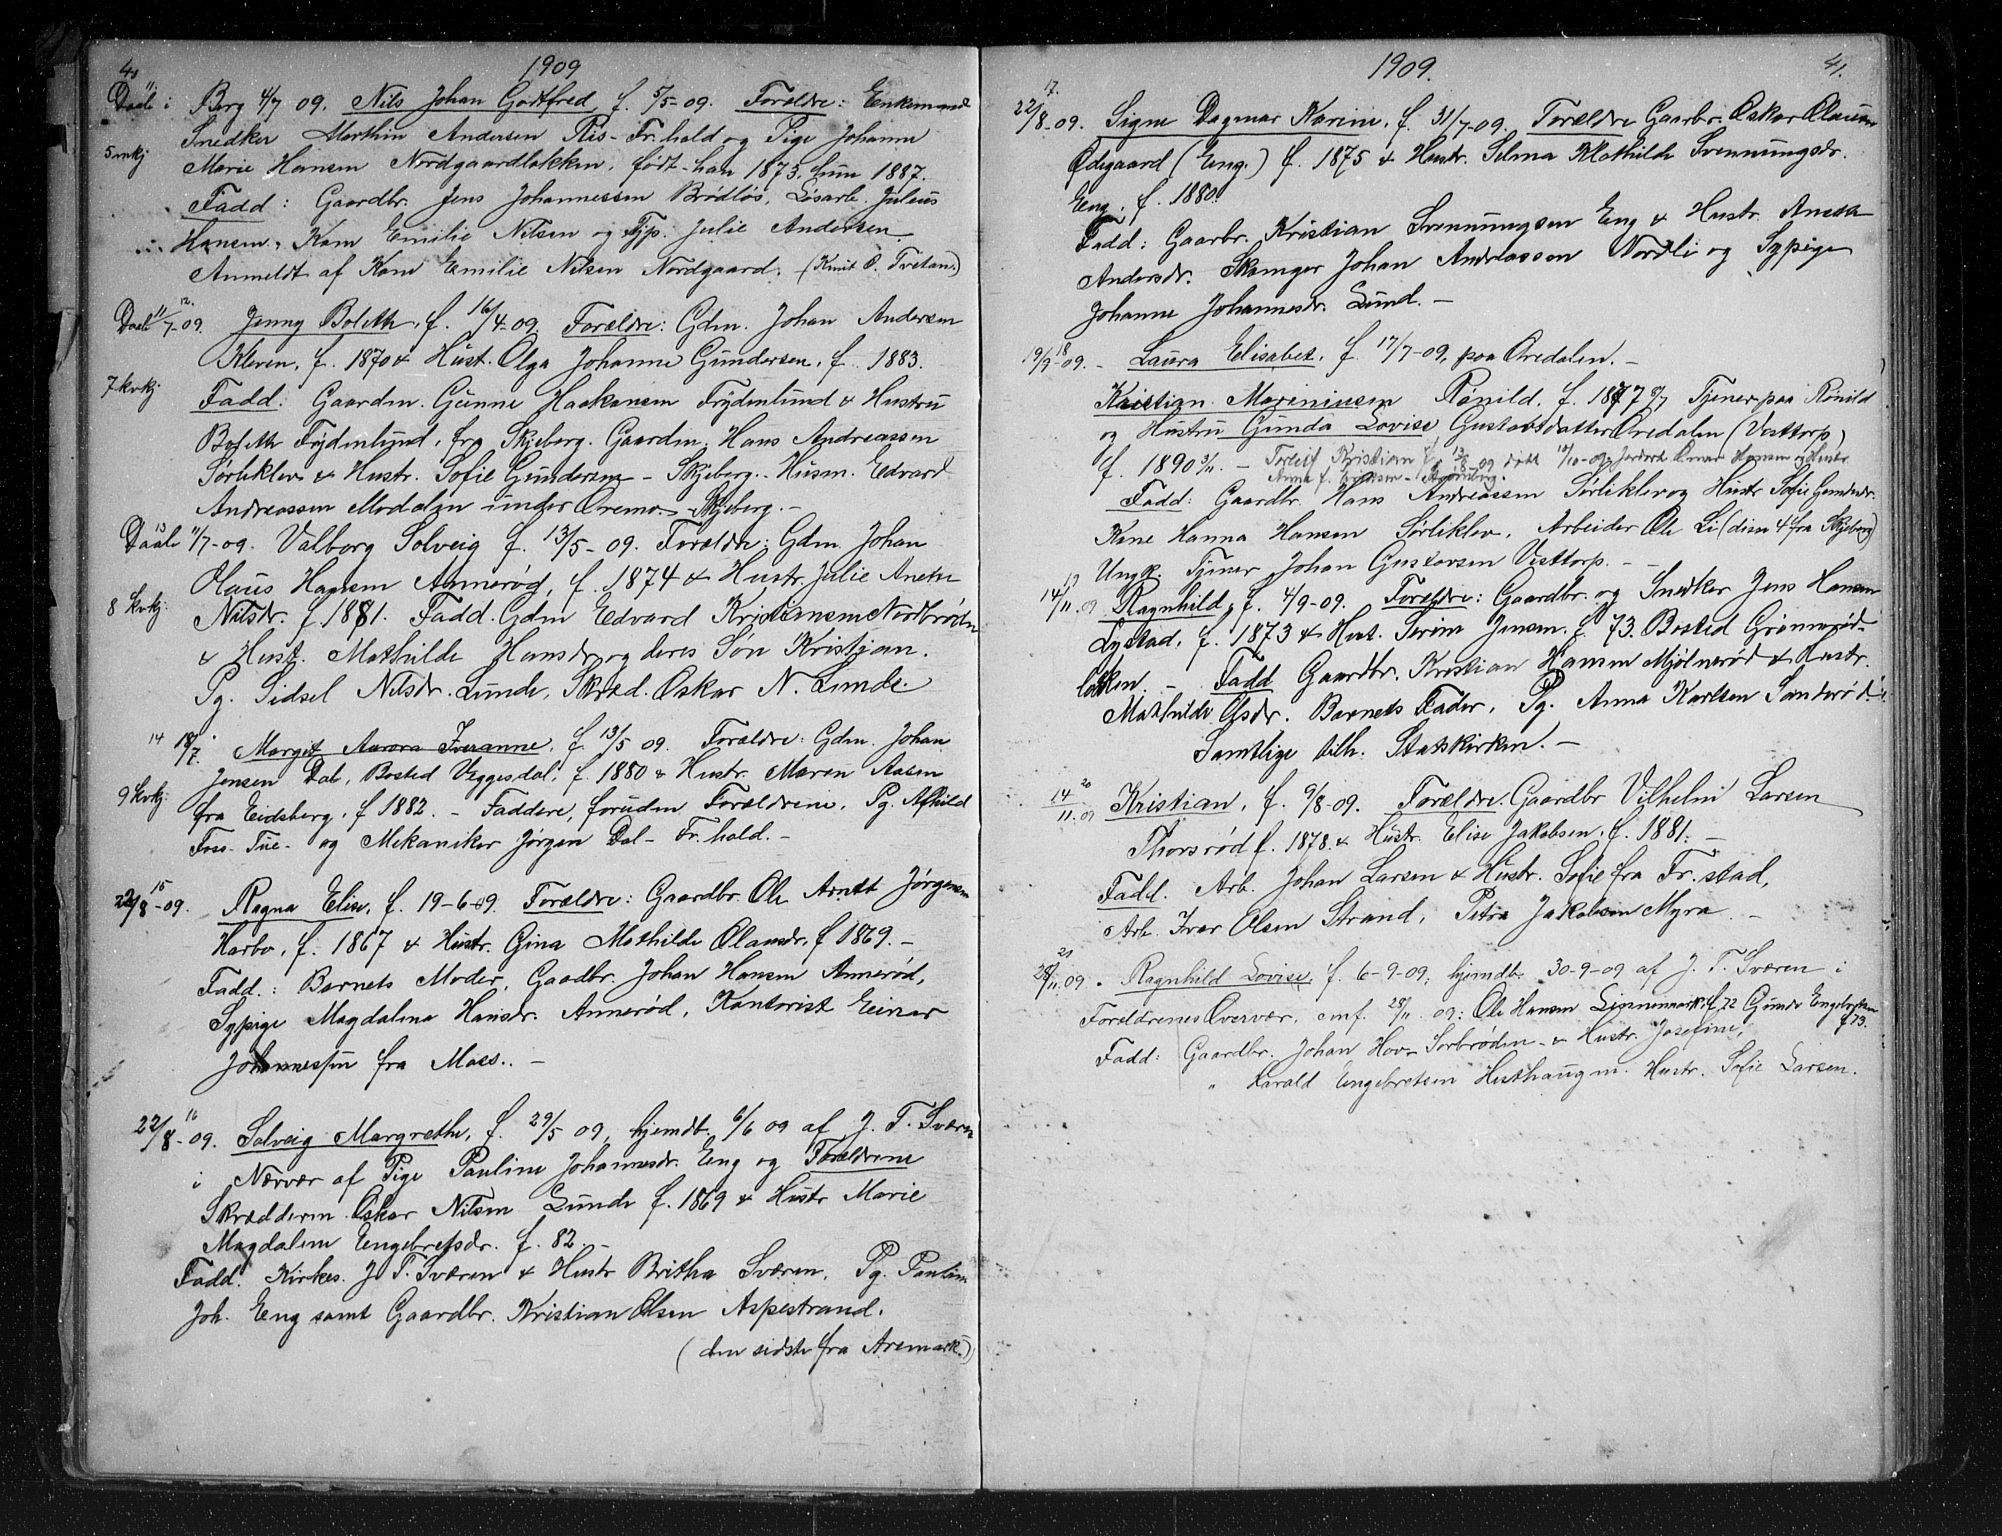 4
1909
11
Daab i Berg 4/7 09. Nils Johan Godtfred f. 5/5-09. Forældre: Enkemand
Snedker Marthin Andersen Ris - Fr.hald og Pige Johanne
5 mkj
Marie Hansen Nordgaardløkken, født - han 1873, hun 1887.
Fadd: Gaardbr. Jens Johannessen Brødløs, Løsarb. Julius
Hansen, Kone Emilie Nilsen og Tjp. Julie Andersen.
Anmeldt af Kone Emilie Nilsen Nordgaard. (Knut O. Tvetan.)
12.
Daab 11/7-09. Jenny Bolette, f. 16/4-09. Forældre: Gdm. Johan Andersen
Kleven, f. 1870 & Hust. Olga Johanne Gundersen, f. 1883.
7 kvkj
Fadd: Gaardm. Gunne Haakonsen Frydenlund & Hustru
Bolette Frydenlund, fra Skjeberg. Gaardm. Hans Andreassen
Sørliklev & Hustr. Sofie Gundersen - Skjeberg. Husm. Edvard
Andreassen Modalen under Oremo - Skjeberg. -
13
Daab 11/7-09. Valborg Solveig f. 13/5-09. Forældre: Gdm. Johan
Olaus Hansen Annerød, f. 1874 & Hustr. Julie Anette
8 kvkj.
Nilsdr. f. 1881. Fadd. Gdm Edvard Kristiansen Nordbrøden
& Hust. Mathilde Hansdr og deres Søn Kristian.
Pg. Sidsel Nilsdr. Lunde, Skræd. Oskar N. Lunde.
14 18/7. Margit Aurora Iveranne, f. 13/5 09. Forældre: Gdm. Johan
Jensen Dal, Bosted Veggesdal, f. 1880 & Hustr. Maren Aasen
9 kvkj.
fra Eidsberg, f. 1882. - Faddere, foruden Forældrene, Pg. Afhild
Foss - Tue - og Mekaniker Jørgen Dal - Fr.hald. -
15
22/8-09. Ragna Elise, f. 19-6-09. Forældre: Gaardbr. Ole Arntt Jørgensen
Harbo, f. 1867 & Hustr. Gina Mathilde Olausdr. f 1869. -
Fadd.: Barnets Moder, Gaardbr. Johan Hansen Annerød,
Sypige Magdalena Hansdr. Annerød, Kontorist Einar
Johannessen fra Moss. -
16
22/8-09. Solveig Margrethe, f. 29/5 09, hjemdt. 6/6 09 af J. T. Sværen
i Nærvær af Pige Pauline Johannesdr. Eng og Forældrene
Skrædderen Oskar Nilsen Lunde f. 1869 & Hustr Marie
Magdalene Engebretsdr. f. 82. -
Fadd. Kirkes. J. T. Sværen & Hustr Britha Sværen, Pg. Pauline
Joh. Eng samt Gaardbr. Kristian Olsen Aspestrand.
(den sidste fra Aremark.)
1909.
41.
17.
22/8-09. Signe Dagmar Karine, f. 31/7-09. Forældre Gaarbr. Oskar Olausen
Ødegaard (Eng.) f. 1875 & Hustr. Selma Mathilde Svenningsdr.
Eng, f. 1880.
Fadd: Gaarbr. Kristian Svenningsen Eng & Hustr. Anette
Andersdr. Skomager Johan Andreassen Nordli og Sypige
Johanne Johannesdr. Lund. -
18
19/9-09. - Laura Elisabet, f. 17/7-09, paa Øredalen. -
Kristian Mariniusen Rønild, f. 1877 Tjener paa Rønild
og Hustru Gunda Lovise Gustavsdatter Øredalen (Vesttorp)
f. 1890 3/11. - Torleif Kristian f. 13/8-09 døbt 10/10-09 Hansen og Hustr
Anna f.
Fadd: Gaardbr. Hans Andreassen Sørliklev og Hustr Sofie Gundersdr.
Kone Hanna Hansen Sørliklev, Arbeider Ole Li (disse 4 fra Skjeberg)
Ungk. Tjener Johan Gustavsen Vesttorp. -
19
14/11.09 Ragnhild, f. 4/9-09. Forældre: Gaardbr. og Snedker Jens Hansen
Lystad, f. 1873 & Hust. Serine Jensen. f. 73. Bosted Grønnerød-
løkken. - Fadd Gaardbr. Kristian Hansen Mjølnerød & Hustr.
Mathilde Olsdr. Barnets Fader, Pg. Anna Karlsen Sanderød
Samtlige tilh. Statskirken. -
20
14/11.09 Kristian, f. 9/8-09. Forældre. Gaardbr Vilhelm Larsen
Thorsrød f. 1878. & Hustr. Elise Jakobsen, f. 1881. -
Fadd. Arb. Johan Larsen & Hustr. Sofie fra Fr.stad,
Arb. Ivar Olsen Strand, Petra Jakobsen Myra. -
21
28/11.09. Ragnhild Lovise, f. 6-9-09, hjemdt. 30-9-09 af J. T. Sværen i
Forældrenes Overvær, conf. 28/11 09: Ole Hansen Linnenmark. f. 72 Gunda Engebretsen
f 73.
Fadd: Gaardbr. Johan Hov - Sorbrøden - & Hustr. Josefine,
" Harald Engebretsen Husthaugen. Hustr. Sofie Larsen.